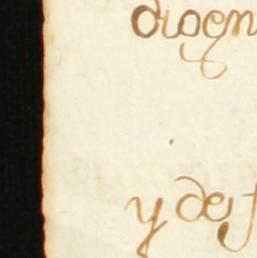 dioen
y def